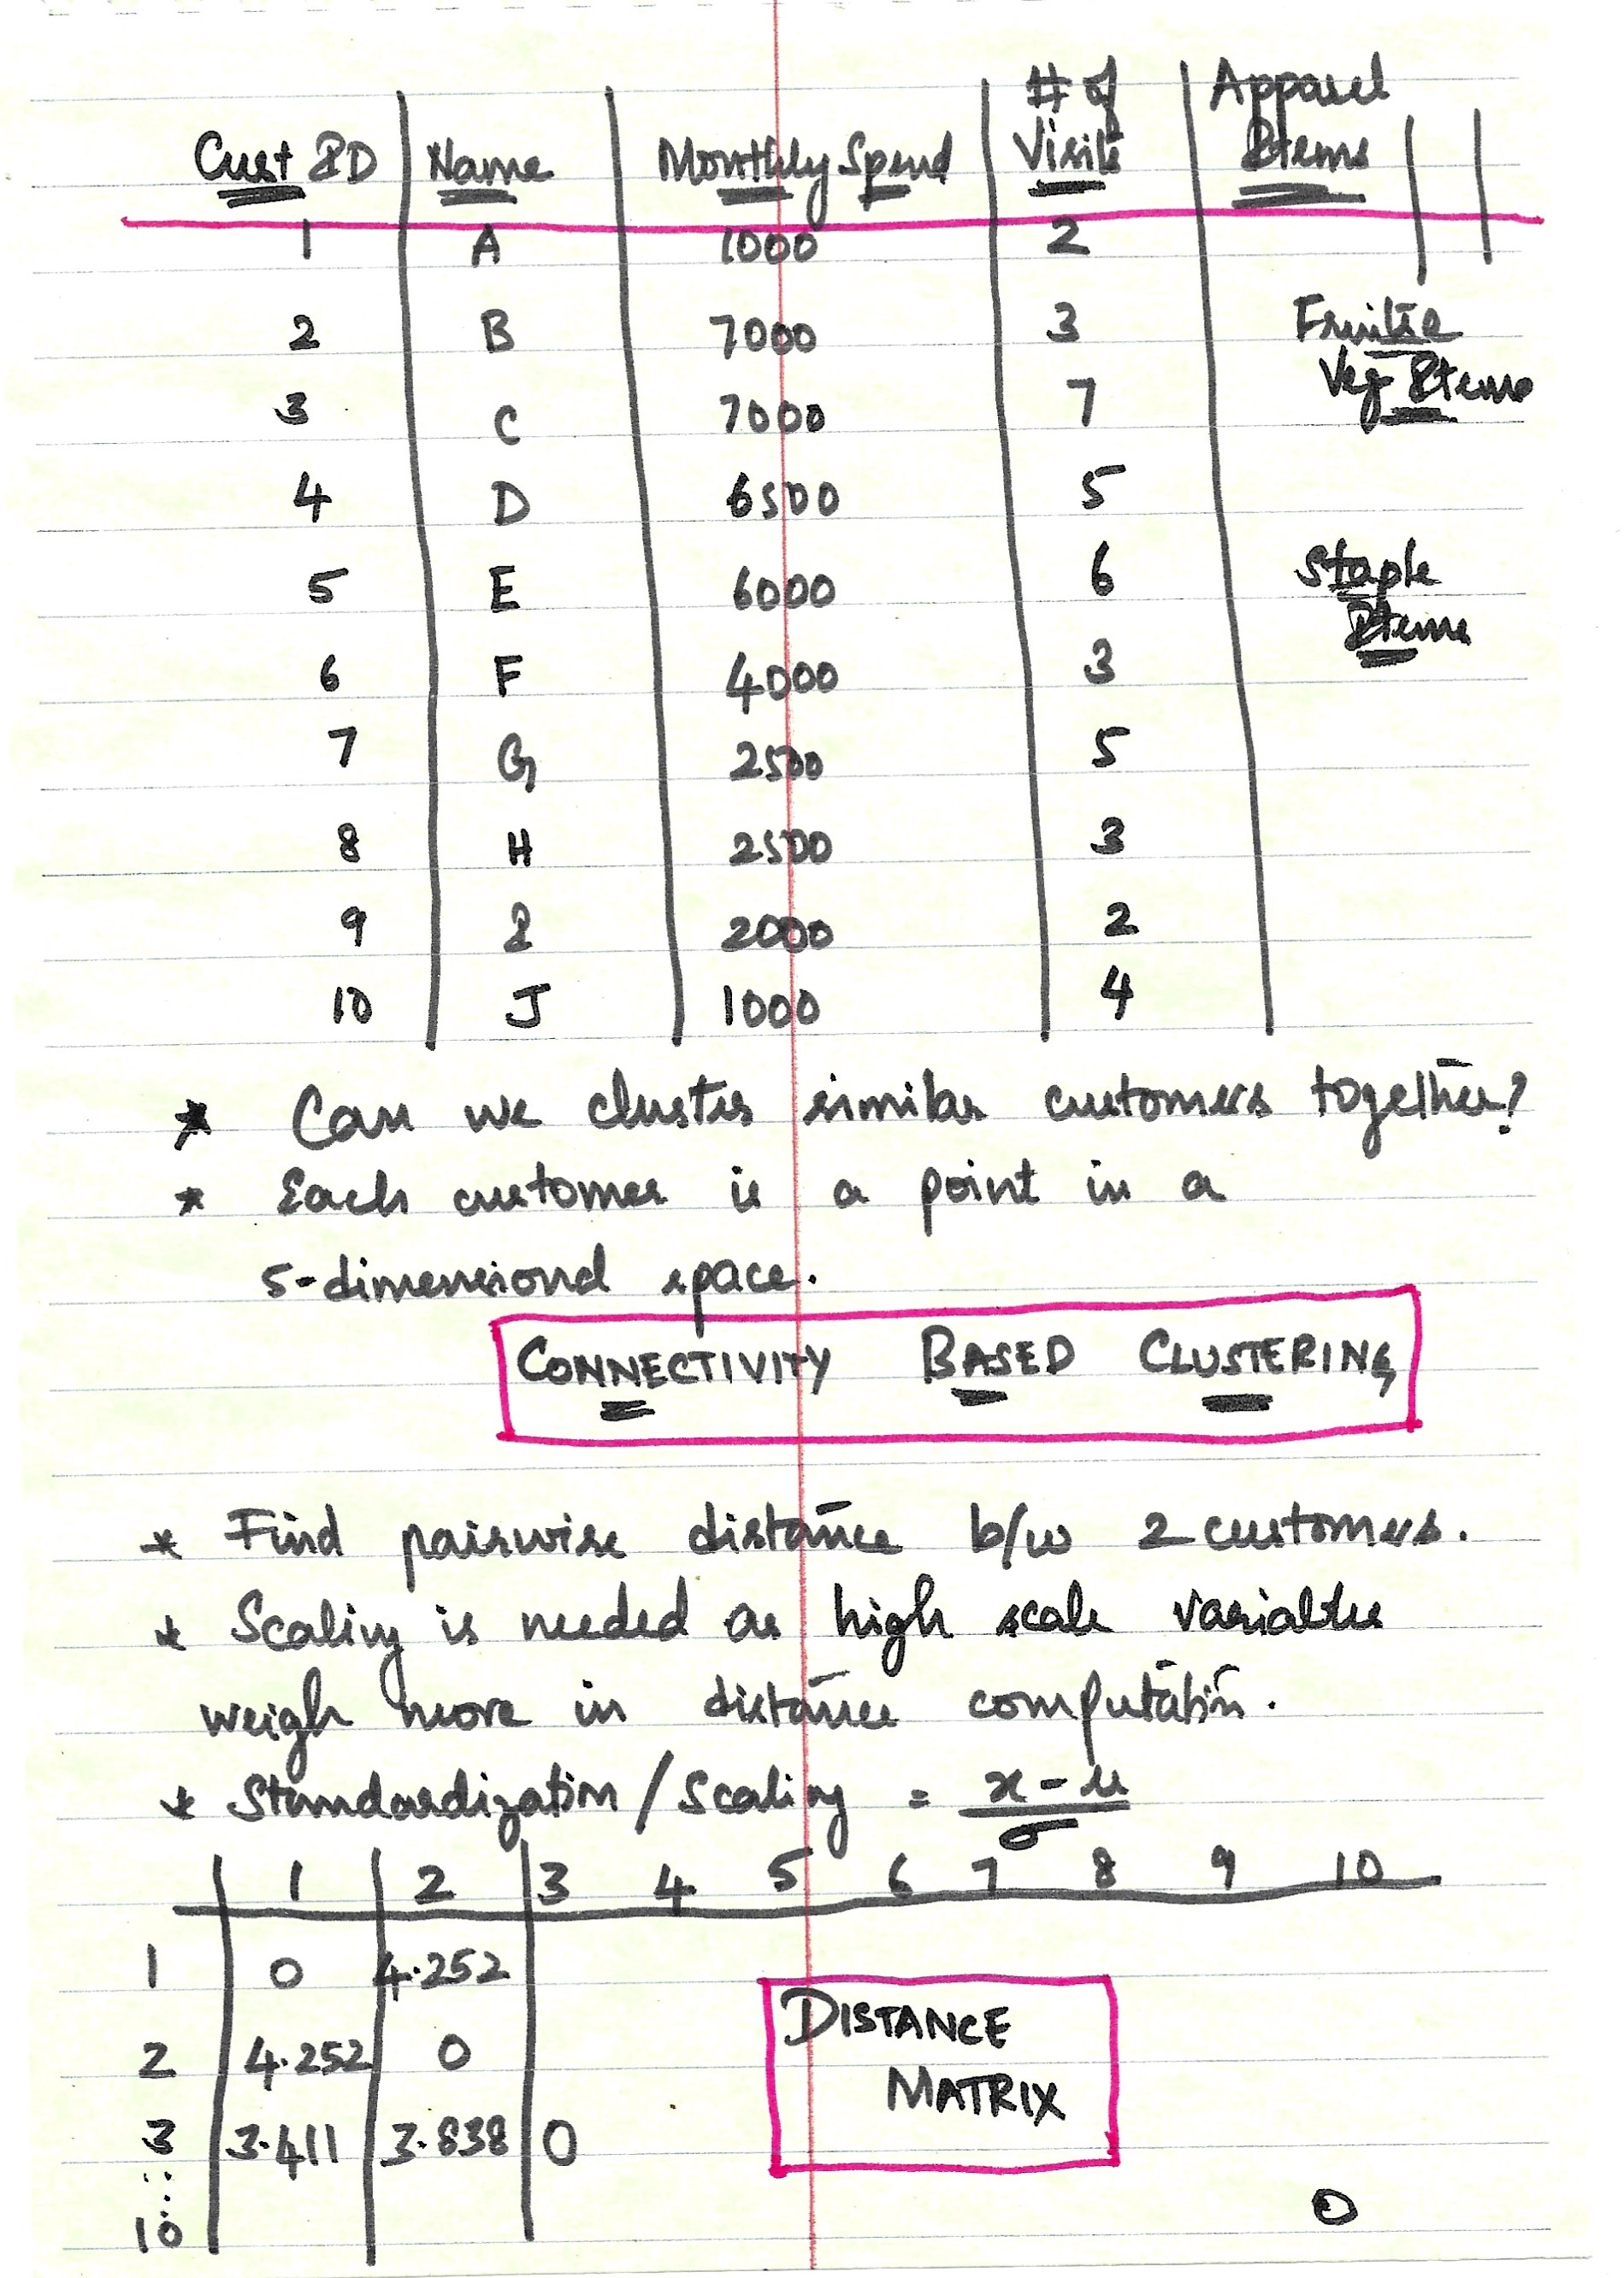 Cust ID | Name | Monthly Spend | # of Visits | Apparel Items | |
1 A 1000 2
2 B 7000 3 Fruits &
Veg Items
3 C 7000 7
4 D 6500 5
5 E 6000 6 Staple
Items
6 F 4000 3
7 G 2500 5
8 H 2500 3
9 I 2000 2
10 J 1000 4
* Can we cluster similar customers together?
* Each customer is a point in a
5-dimensional space.
CONNECTIVITY BASED CLUSTERING
* Find pairwise distance b/w 2 customers.
* Scaling is needed as high scale variables
weigh more in distance computation.
* Standardization / Scaling = x - μ / σ
1 2 3 4 5 6 7 8 9 10
1 0 4.252
DISTANCE
2 4.252 0
MATRIX
3 3.411 3.838 0
:
:
10 0